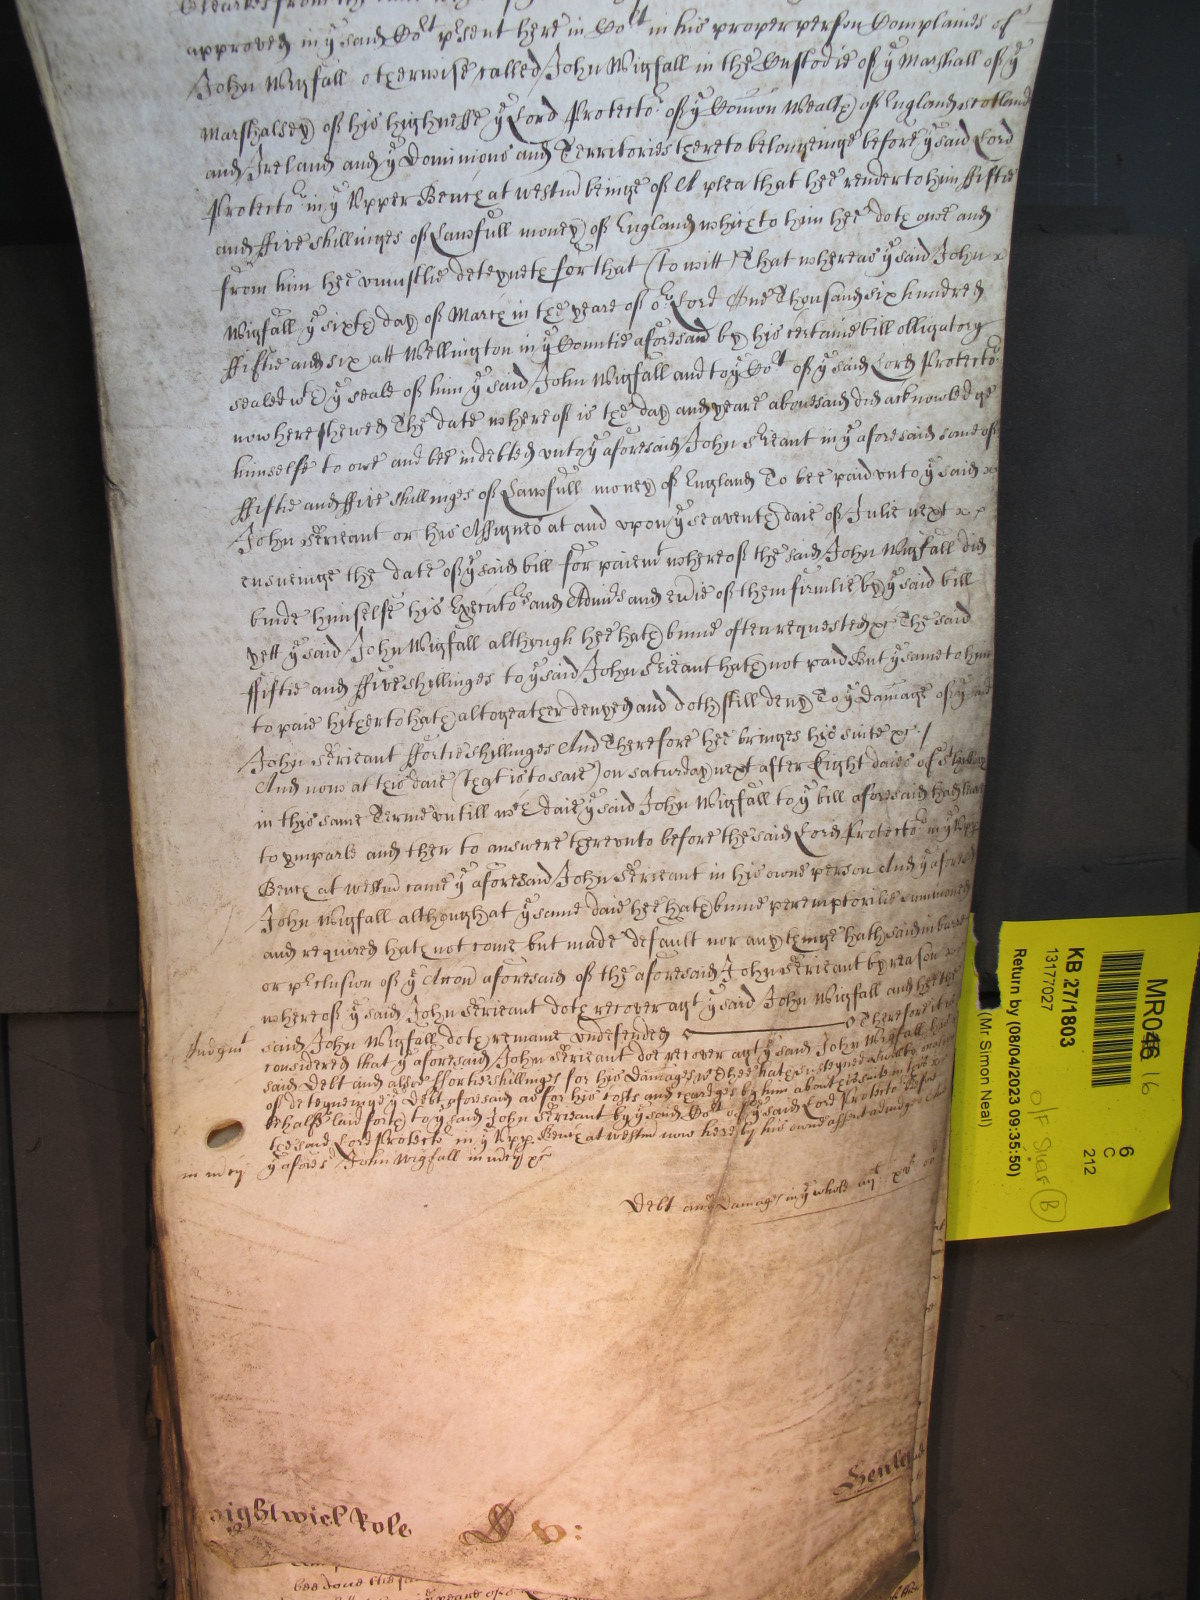 approved in yͤ said Coͬt pͬsent here in Coͬt in his proper person Complaines of
John Wigfall otherwise called John Wigfall in the Custodie of yͤ Marshall of yͤ
Marshalsey of his highnesse yͤ Lord Protectoͬ of yͤ Com̃on Wealth of England Scotland
and Ireland and yͤ Dominions and Territories thereto belongeinge before yͤ said Lord
Protectoͬ in yͤ Vpper Bench at westm̃ beinge of A plea that hee render to him ffiftie
and ffive shillinges of Lawfull money of England which to him hee doth owe and
from him hee vniustlie deteyneth for that (to witt) That whereas yͤ said John x
Wigfall yͤ sixth day of March in the yeare of oͬ Lord One Thousand six hundred
ffiftie and six att Wellington in yͤ Countie aforesaid by his certaine bill obligatory
sealed wͭh yͤ seale of him yͤ said John Wigfall and to yͤ Coͬt of yͤ said Lord Protectoͬ
now here shewed The date whereof is the day and yeare abovesaid did acknowledge
himselfe to owe and bee indebted vnto yͤ aforesaid John Serieant in yͤ aforesaid some of
ffiftie and ffive shillinges of Lawfull money of England To bee paid vnto yͤ said x
John Serieant or his Assignes at and vpon yͤ seaventh daie of Julie next x x
ensueinge the date of yͤ said bill for paiemͭ whereof the said John Wigfall did
binde himselfe his Executoͬs and Admĩs and evĩe of them firmlie by yͤ said bill
yett yͤ said John Wigfall although hee hath binne often requested &c The said
ffiftie and ffive shillinges to yͤ said John Serieant hath not paid But yͤ same to him
to paie hitherto hath altogeather denyed and doth still deny To yͤ damage of yͤ said
John Serieant ffortie shillinges And Therefore hee bringes his suite &c /
And now at this daie (that is to saie) on saturday next after Eight daies of Sͭ Hillary
in this same Terme vntill wͨh daie yͤ said John Wigfall to yͤ bill aforesaid had leave
to ymparle and then to answere therevnto before the said Lord Protectoͬ in yͤ Vpp
Bench at westm̃ came yͤ aforesaid John Serieant in his owne person And yͤ aforesaid
John Wigfall although at yͤ same daie hee hath binne peremptorilie summoned
and required hath not come but made default nor any thinge hath said in barre
or pͬclusion of yͤ Ac̃on aforesaid of the aforesaid John Serieant by reason x
whereof yͤ said John Serieant doth recover agͭ yͤ said John Wigfall and hee the
said John Wigfall doth remaine vndefended Therefore it is
Iudgmͭ
considered that yͤ aforesaid John Serieant doe recover agͭ yͤ said John Wigfall his
said Debt and alsoe ffortie shillinges for his damages wͨh hee hath susteyned aswell by occasion
of deteyneinge yͤ Debt aforesaid as for his costs and chardges by him about his suite in that x
behalfe laid forth to yͤ said John Serieant by yͤ said Coͬt of yͤ said Lord Protectoͬ before
the said Lord Protectoͬ in yͤ Vpp Bench at westm̃ now here by his owne assent adiudged And
yͤ aforesͩ John Wigfall in m̃cy &c
in m̃cy
Debt and Damages in yͤ whole
ightwick Role
bee done
KB 27/1803
13177027
Return by (08/04/2023 09:35:50)
(Mr Simon Neal)
6
C
212
B
16